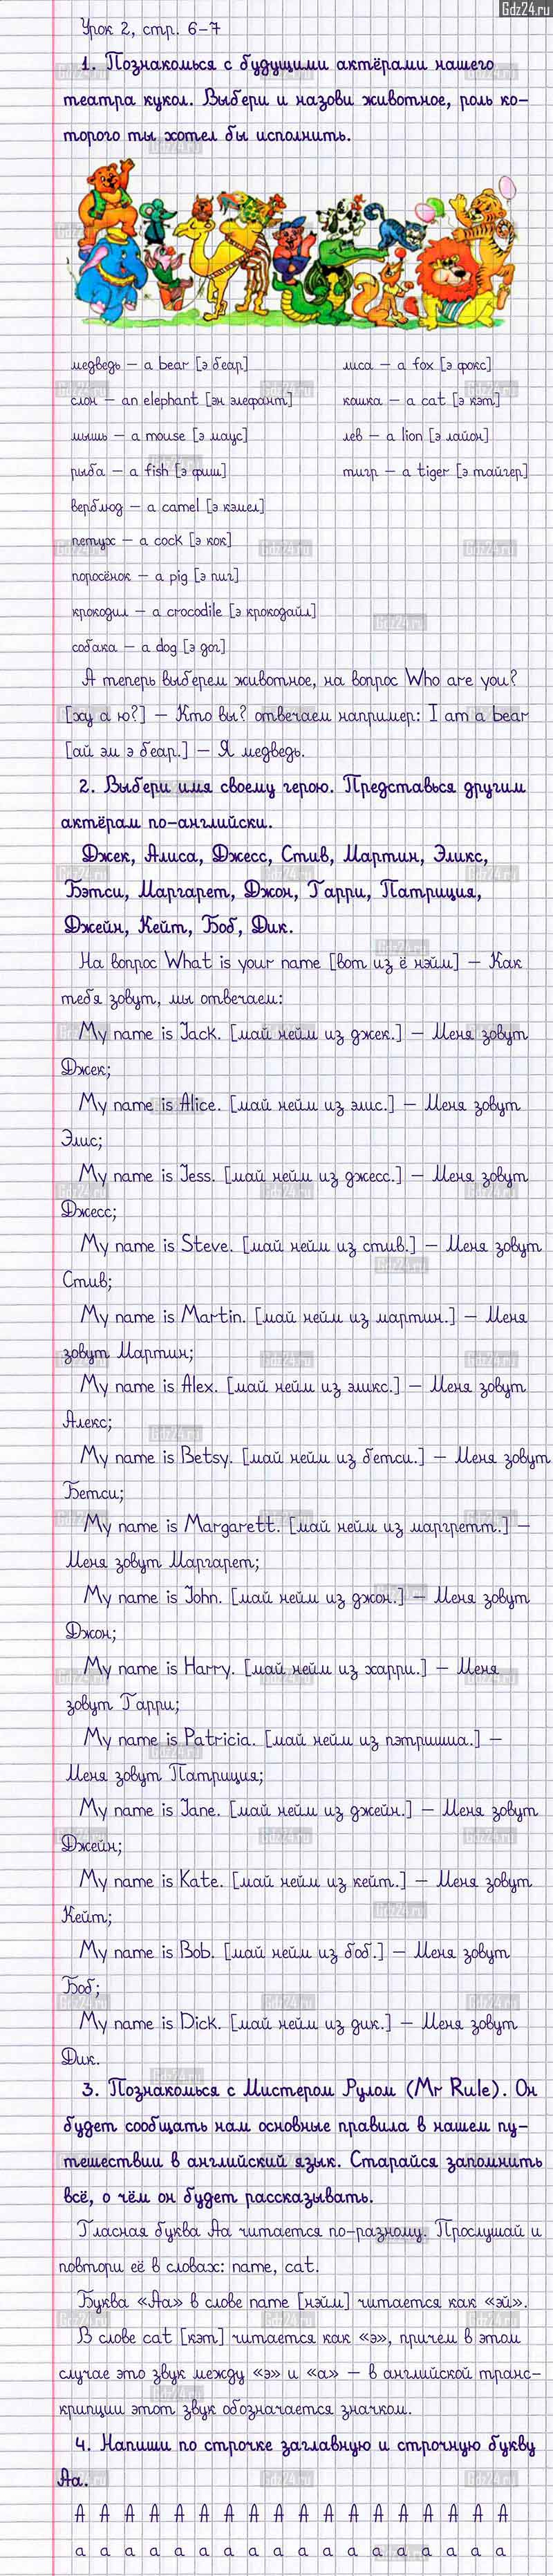 Gdz24.ru
Урок 2, стр. 6-7
1. Познакомься с будущими актёрами нашего
театра кукол. Выбери и назови животное, роль ко-
торого ты хотел бы исполнить.
медведь – a bear [э беар]
слон – an elephant [эн элефант]
мышь – a mouse [э маус]
рыба – a fish [э фиш]
верблюд – a camel [э кэмел]
петух – a cock [э кок]
поросёнок – a pig [э пиг]
крокодил – a crocodile [э крокодайл]
собака – a dog [э дог]
лиса – a fox [э фокс]
кошка – a cat [э кэт]
лев – a lion [э лайон]
тигр – a tiger [э тайгер]
А теперь выберем животное, на вопрос Who are you?
[ху а ю?] – Кто вы? отвечаем например: I am a bear
[ай эм э беар.] – Я медведь.
2. Выбери имя своему герою. Представься другим
актёрам по-английски.
Джек, Алиса, Джесс, Стив, Мартин, Эликс,
Бэтси, Маргарет, Джон, Гарри, Патриция,
Джейн, Кейт, Боб, Дик.
На вопрос What is your name [вот из ё нэйм] – Как
тебя зовут, мы отвечаем:
My name is Jack. [май нейм из джек.] – Меня зовут
Джек;
My name is Alice. [май нейм из элис.] – Меня зовут
Элис;
My name is Jess. [май нейм из джесс.] – Меня зовут
Джесс;
My name is Steve. [май нейм из стив.] – Меня зовут
Стив;
My name is Martin. [май нейм из мартин.] – Меня
зовут Мартин;
My name is Alex. [май нейм из эликс.] – Меня зовут
Алекс;
My name is Betsy. [май нейм из бетси.] – Меня зовут
Бетси;
My name is Margarett. [май нейм из маргретт.] –
Меня зовут Маргарет;
My name is John. [май нейм из джон.] – Меня зовут
Джон;
My name is Harry. [май нейм из харри.] – Меня
зовут Гарри;
My name is Patricia. [май нейм из пэтришиа.] –
Меня зовут Патриция;
My name is Jane. [май нейм из джейн.] – Меня зовут
Джейн;
My name is Kate. [май нейм из кейт.] – Меня зовут
Кейт;
My name is Bob. [май нейм из боб.] – Меня зовут
Боб;
My name is Dick. [май нейм из дик.] – Меня зовут
Дик.
3. Познакомься с Мистером Рулом (Mr Rule). Он
будет сообщать нам основные правила в нашем пу-
тешествии в английский язык. Старайся запомнить
всё, о чём он будет рассказывать.
Гласная буква Аа читается по-разному. Прослушай и
повтори её в словах: name, cat.
Буква «Аа» в слове name [нэйм] читается как «эй».
В слове cat [кэт] читается как «э», причем в этом
случае это звук между «э» и «а» – в английской транс-
крипции этот звук обозначается значком.
4. Напиши по строчке заглавную и строчную букву
Аа.
A A A A A A A A A A A A A A A A A A
a a a a a a a a a a a a a a a a a a